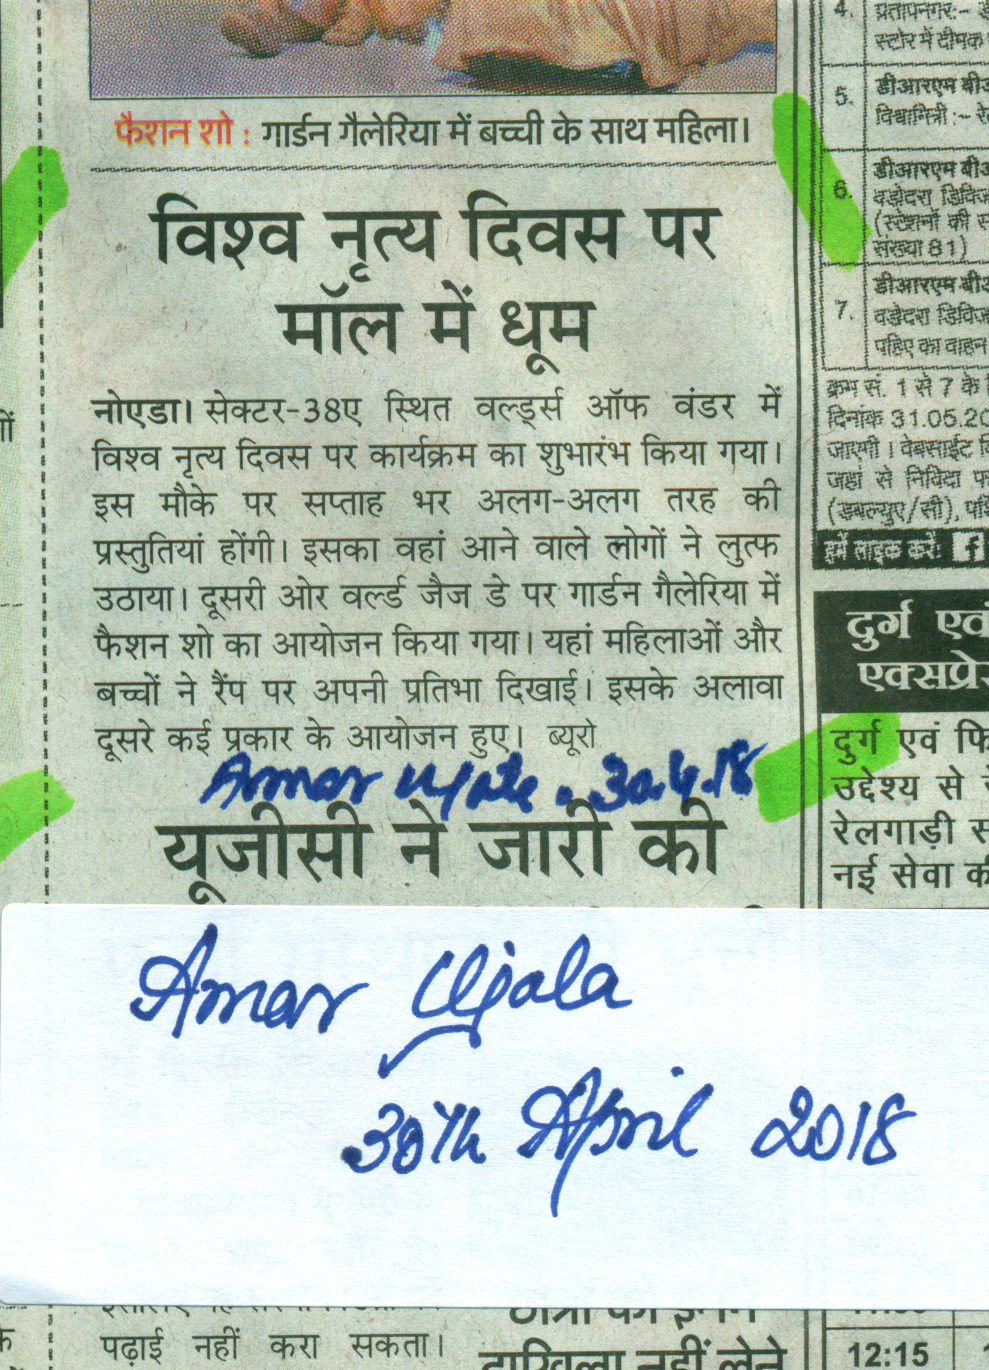 फैशन शो : गार्डन गैलेरिया में बच्ची के साथ महिला।
विश्व नृत्य दिवस पर
मॉल में धूम
नोएडा। सेक्टर-38ए स्थित वर्ल्ड्स ऑफ वंडर में
विश्व नृत्य दिवस पर कार्यक्रम का शुभारंभ किया गया।
इस मौके पर सप्ताह भर अलग-अलग तरह की
प्रस्तुतियां होंगी। इसका वहां आने वाले लोगों ने लुत्फ
उठाया। दूसरी ओर वर्ल्ड जैज डे पर गार्डन गैलेरिया में
फैशन शो का आयोजन किया गया। यहां महिलाओं और
बच्चों ने रैंप पर अपनी प्रतिभा दिखाई। इसके अलावा
दूसरे कई प्रकार के आयोजन हुए। ब्यूरो
Amar Ujala. 30.4.18
यूजीसी ने जारी की
Amar Ujala
30th April 2018
पढ़ाई नहीं करा सकता।
दाखिला नहीं लेने
4. प्रतापनगर:-
स्टोर में दीमक
5. डीआरएम
विश्वामित्री :-
6. डीआरएम
वडोदरा
(स्टेशनों की
संख्या 81)
7. डीआरएम
वडोदरा
पहिए का वाहन
क्रम सं. 1 से 7 के
दिनांक 31.05.20
जाएगी। वेबसाईट
जहां से निविदा
(डबल्युए/सी),
हमें लाइक करें: f
दुर्ग एवं
एक्सप्रे
दुर्ग एवं फि
उद्देश्य से
रेलगाड़ी स
नई सेवा क
12:15